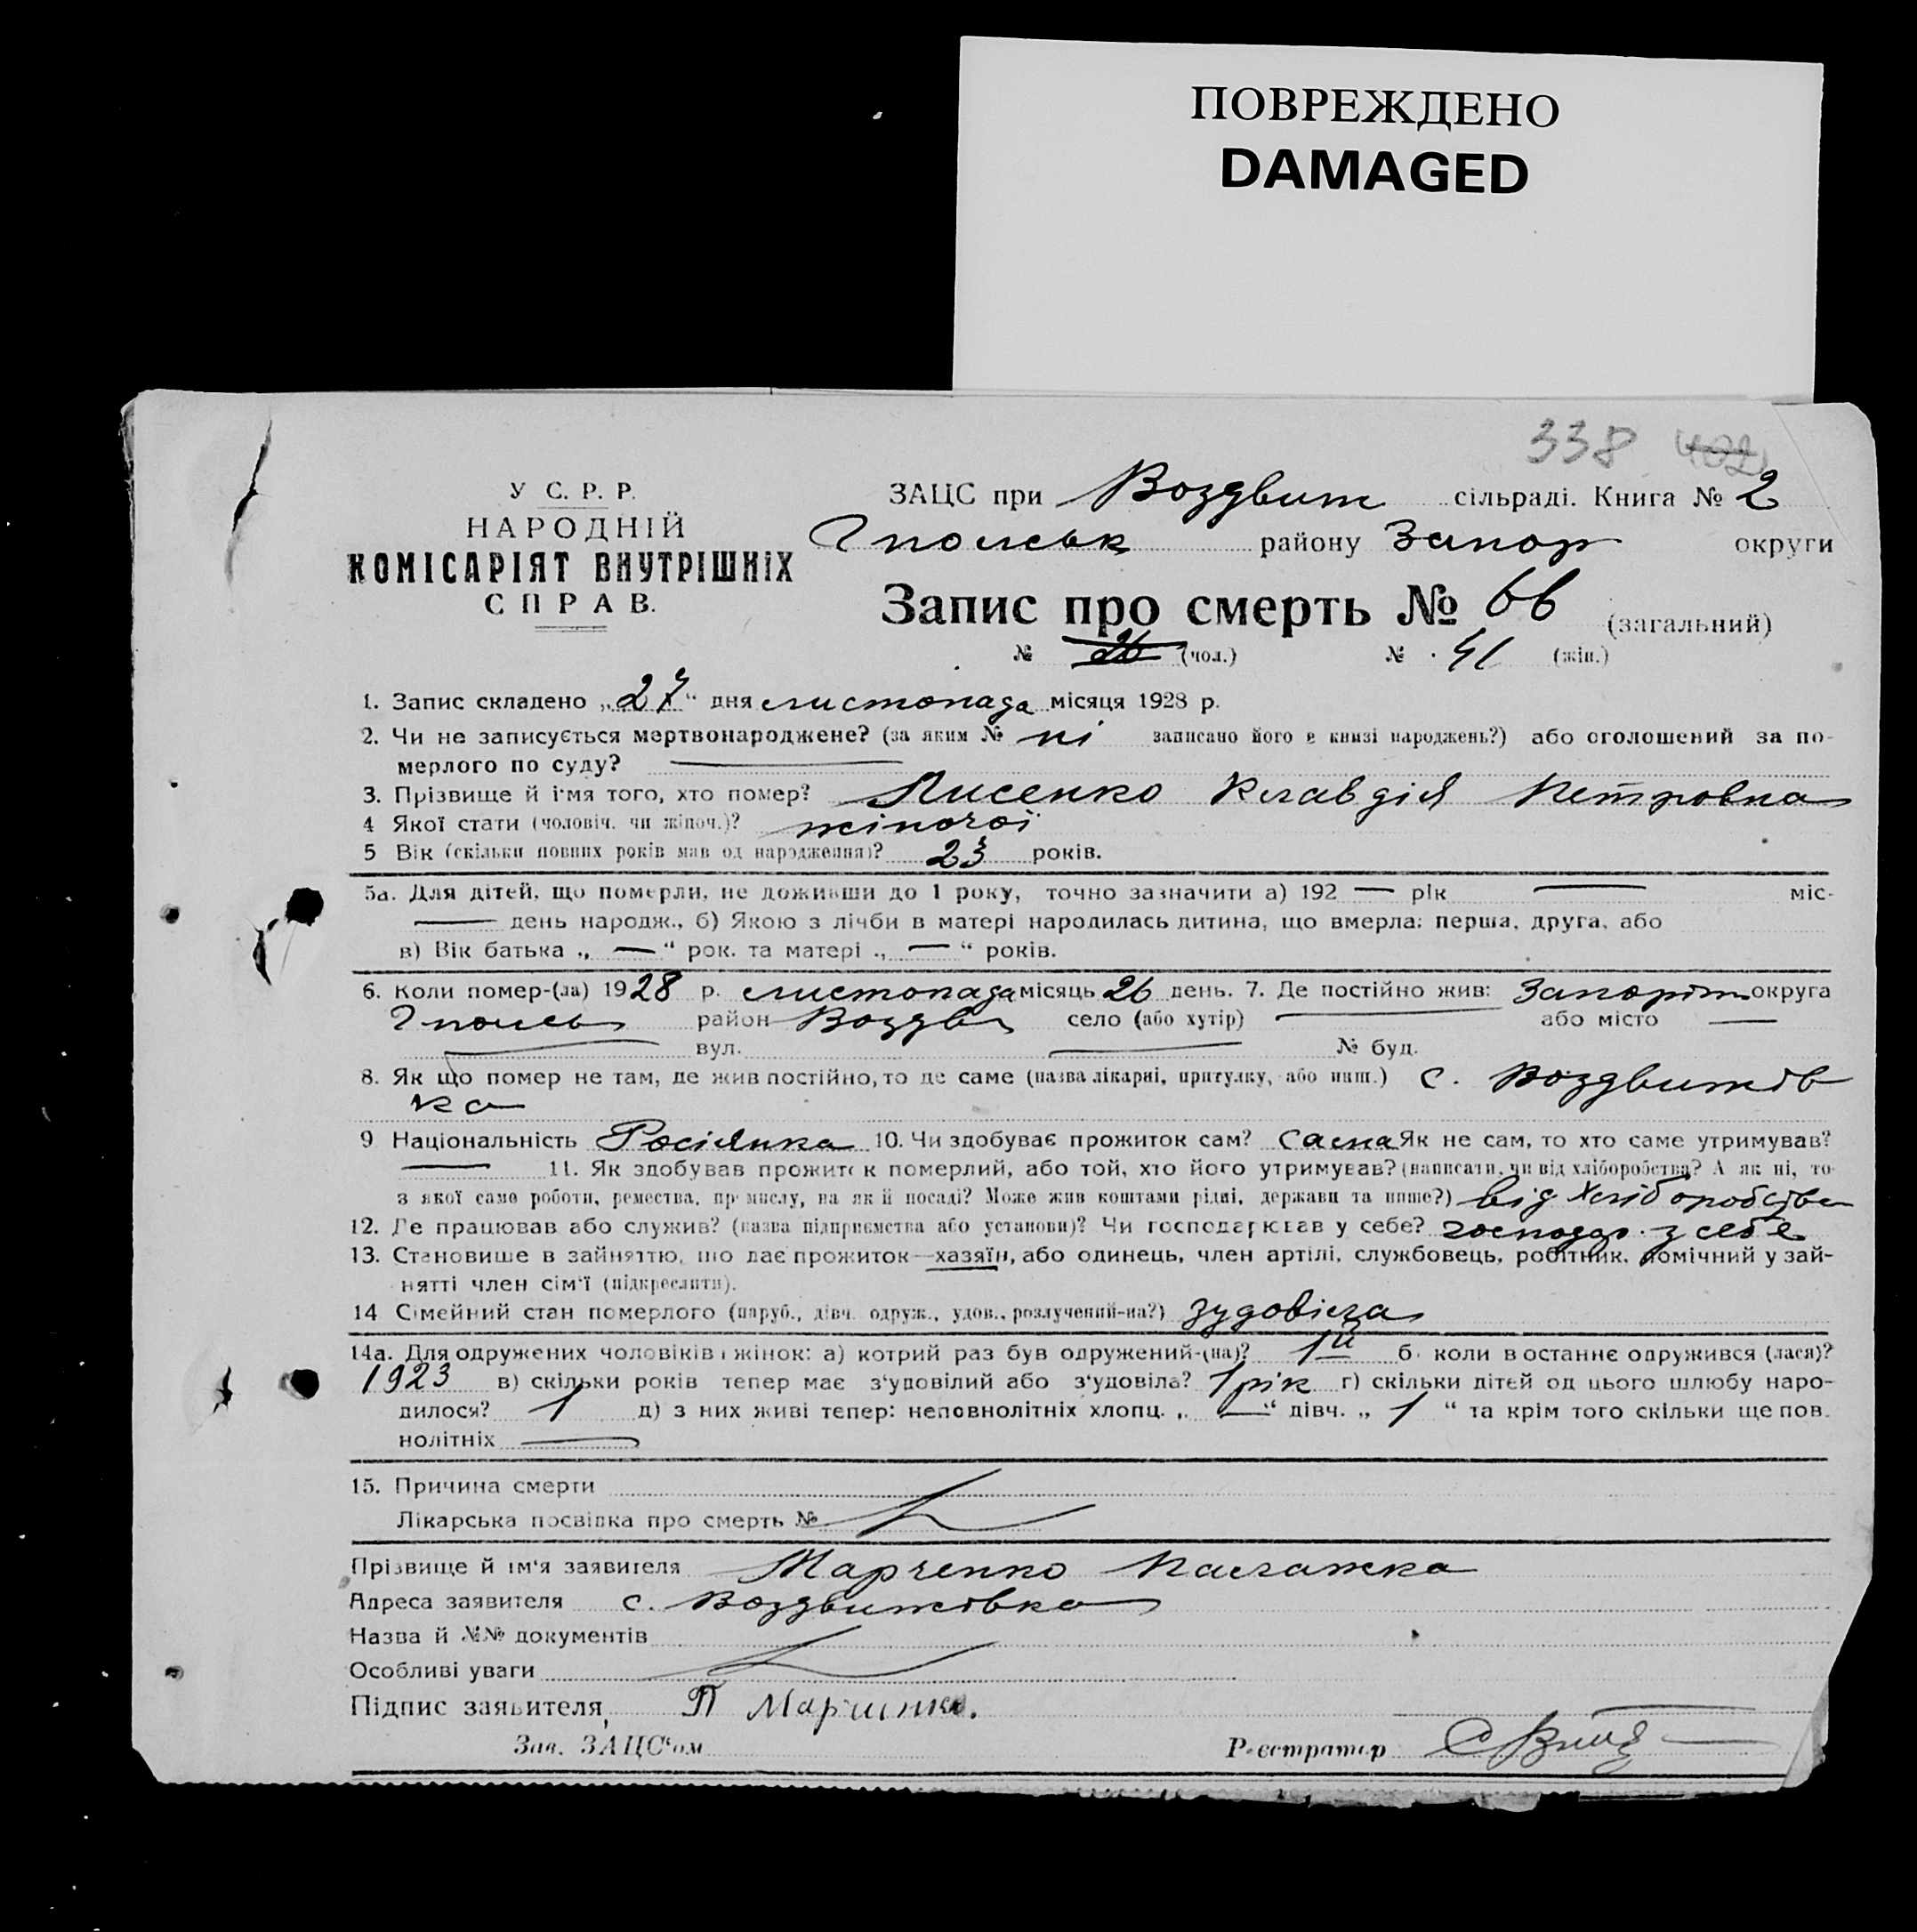 ПОВРЕЖДЕНО
DAMAGED
338 402
У С. Р. Р.
НАРОДНІЙ
КОМІСАРІЯТ ВНУТРІШНІХ
СПРАВ.
ЗАЦС при Воздвиж сільраді. Книга № 2
району Запор округи
Запис про смерть № 66 (загальний)
№ 26 (чол.) № 41 (жін.)
1. Запис складено „27“ дня листопада місяця 1928 р.
2. Чи не записується мертвонароджене? (за яким № ні записано його в книзі народжень?) або оголошений за по-
мерлого по суду? —
3. Прізвище й і'мя того, хто помер? Лисенко Клавдія Петровна
4 Якої стати (чоловіч. чи жіноч.)? жіночої
5 Вік (скільки повних років мав од народження)? 23 років.
5а. Для дітей, що померли, не доживши до 1 року, точно зазначити а) 192 — рік — міс-
— день народж., б) Якою з лічби в матері народилась дитина, що вмерла: перша, друга, або
в) Вік батька „ — “ рок. та матері „ — “ років.
6. Коли помер-(ла) 1928 р. листопада місяць 26 день. 7. Де постійно жив: Запоріж округа
район Воздв село (або хутір) — або місто —
— вул. — № буд.
8. Як що помер не там, де жив постійно, то де саме (назва лікарні, притулку, або инш.) с. Воздвижів
ка
9 Національність Росіянка 10. Чи здобуває прожиток сам? сама Як не сам, то хто саме утримував?
— 11. Як здобував прожиток померлий, або той, хто його утримував? (написати, чи від хліборобства? А як ні, то
з якої саме роботи, ремества, промислу, на якій посаді? Може жив коштами рідні, держави та инше?) від хліборобства
12. Де працював або служив? (назва підприємства або установи)? Чи господарював у себе? господар. у себе
13. Становище в зайняттю, що дає прожиток—хазяїн, або одинець, член артілі, службовець, робітник, помічний у зай-
нятті член сім'ї (підкреслити).
14 Сімейний стан померлого (паруб., дівч. одруж., удов., розлучений-на?) зудовіла
14а. Для одружених чоловіків і жінок: а) котрий раз був одружений-(на)? 1й б. коли востаннє одружився (лася)?
1923 в) скільки років тепер має з'удовілий або з'удовіла? 1 рік г) скільки дітей од цього шлюбу наро-
дилося? 1 д) з них живі тепер: неповнолітніх хлопц. „ — “ дівч. „ 1 “ та крім того скільки ще пов.
нолітніх —
15. Причина смерти
Лікарська посвідка про смерть №
Прізвище й ім'я заявителя Марченко Палажка
Адреса заявителя с. Воздвижівка
Назва й №№ документів
Особливі уваги
Підпис заявителя, П Марчинко.
Зав. ЗАЦС'ом Реєстратор